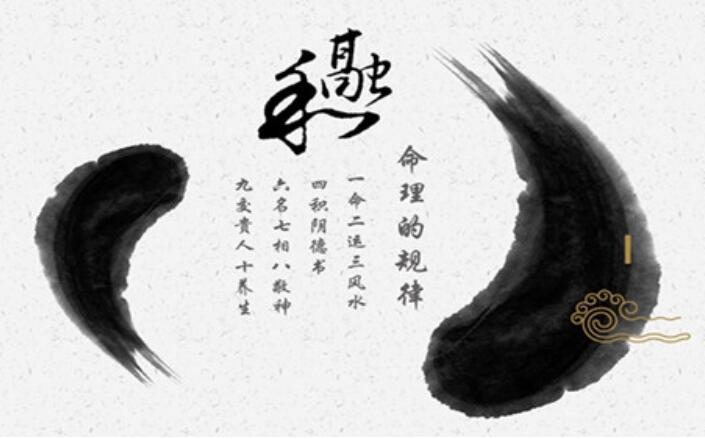 命理的规律
一命二运三风水
四积阴德书
六名七相八敬神
九交贵人十养生